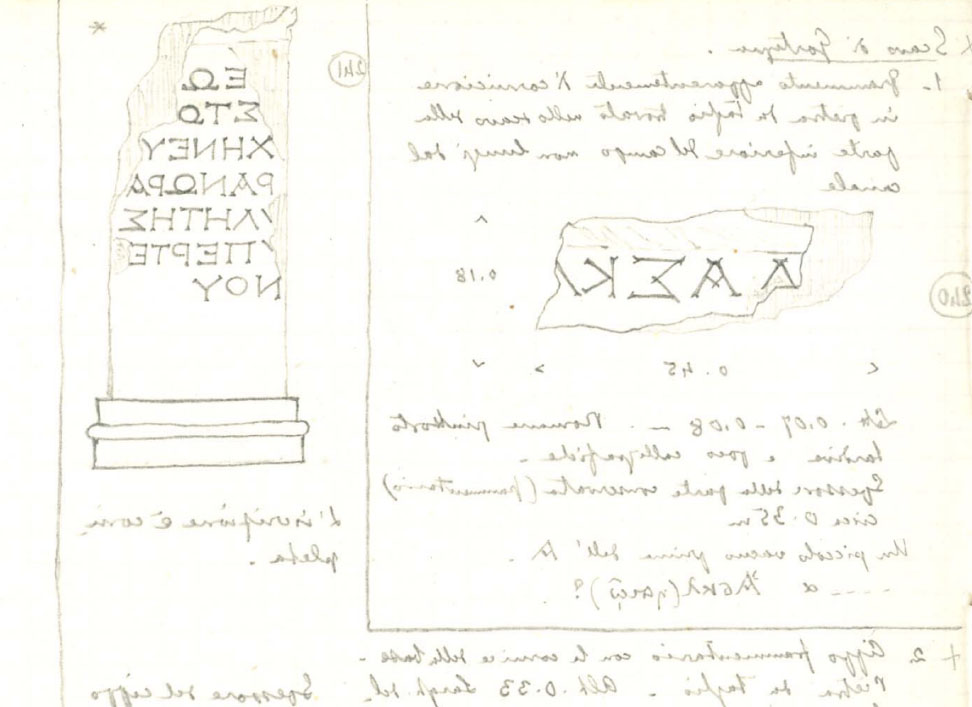 Scavo di Gortyna.
1. Frammento apparentemente di cornicione
in pietra da taglio trovato nello scavo della
parte inferiore del campo non lungi dal
canale
240
Α ΑΣΚΛ
0.18
0.45
Lett. 0.07 - 0.08 - . Romane piuttosto
tardive e poco calligrafiche -
Spessore della parte conservata (frammentario)
circa 0.35 m
Un piccolo vacuo prima dell' A .
---- α Ἀσκλ(ηπιῷ)?
241
ΕΩ
ΣΤΩ
ΧΗΝΕΥ
ΡΑΝΩΡΑ
ΛΗΤΗΣ
ΠΕΡΤΕ
ΝΟΥ
L'iscrizione è com
pleta .
+ 2. Cippo frammentario con la cornice della base -
Pietra da taglio - Alt. 0.33 Largh. del.
Spessore del cippo